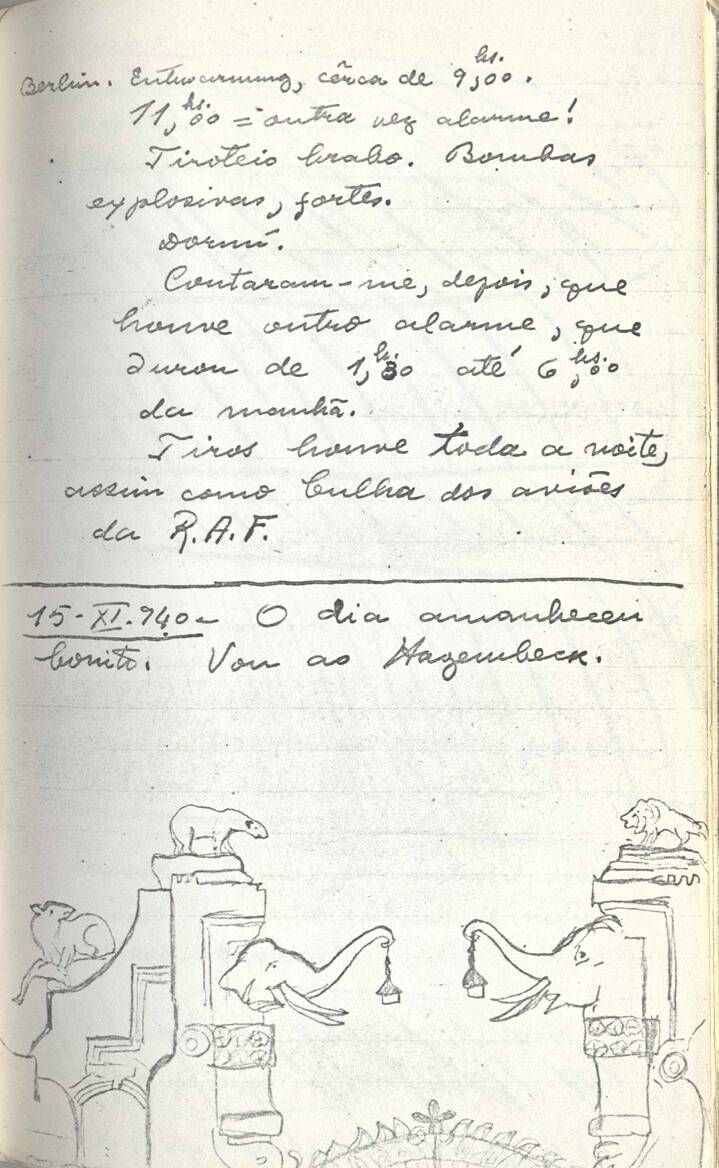 Berlin. Entwarnung, cêrca de 9,hs.00.
11,hs.00 = outra vez alarme!
Tiroteio brabo. Bombas
explosivas, fortes.
Dormí.
Contaram-me, depois, que
houve outro alarme, que
durou de 1,hs.30 até 6,hs.00
da manhã.
Tiros houve toda a noite,
assim como bulha dos aviões
da R.A.F.
15-XI.940- O dia amanheceu
bonito. Vou ao Hagembeck.